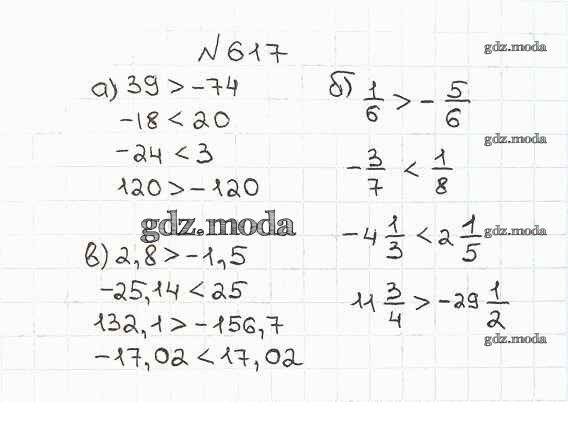 №617
а) 39 > -74
-18 < 20
-24 < 3
120 > -120
б) 1/6 > - 5/6
- 3/7 < 1/8
-4 1/3 < 2 1/5
11 3/4 > -29 1/2
в) 2,8 > -1,5
-25,14 < 25
132,1 > -156,7
-17,02 < 17,02
gdz.moda
gdz.moda
gdz.moda
gdz.moda
gdz.moda